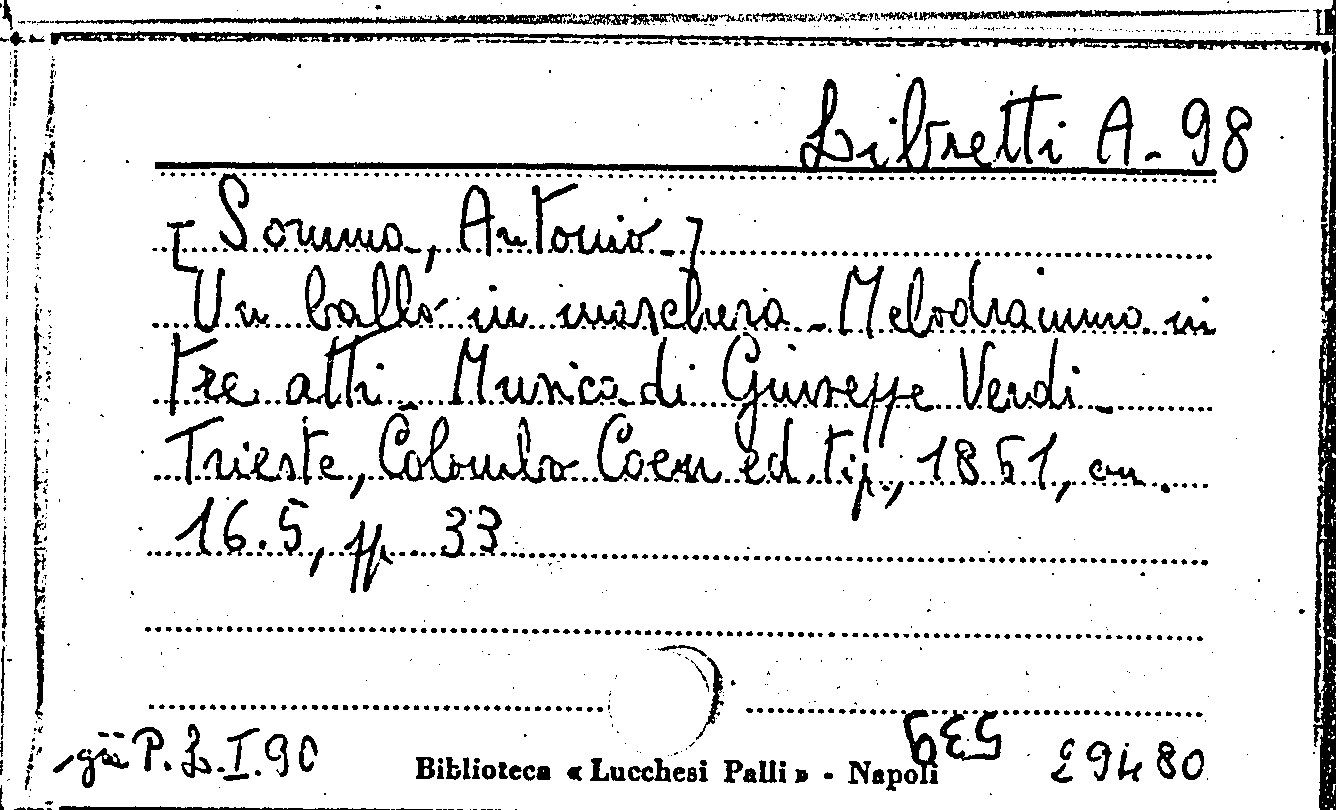 Libretti A-98
[Somma, Antonio-]
Un ballo in maschera - Melodramma in
tre atti - Musica di Giuseppe Verdi -
Trieste, Colombo Coen ed. tip., 1861, cm.
16.5, pp. 33
già P.L.I.90
Biblioteca « Lucchesi Palli » - Napoli
539
29480